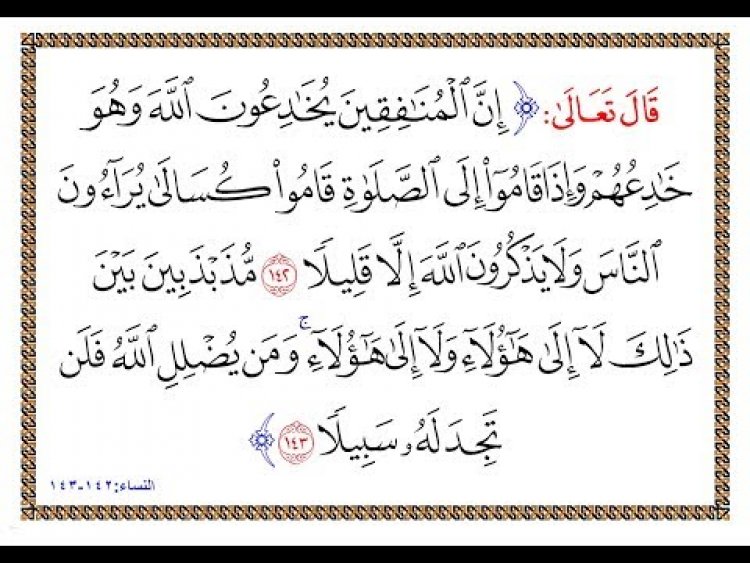 قَالَ تَعَالَىٰ: ﴿ إِنَّ ٱلْمُنَٰفِقِينَ يُخَٰدِعُونَ ٱللَّهَ وَهُوَ
خَٰدِعُهُمْ وَإِذَا قَامُوٓا۟ إِلَى ٱلصَّلَوٰةِ قَامُوا۟ كُسَالَىٰ يُرَآءُونَ
ٱلنَّاسَ وَلَا يَذْكُرُونَ ٱللَّهَ إِلَّا قَلِيلًا ١٤٢ مُّذَبْذَبِينَ بَيْنَ
ذَٰلِكَ لَآ إِلَىٰ هَٰٓؤُلَآءِ وَلَآ إِلَىٰ هَٰٓؤُلَآءِ ۚ وَمَن يُضْلِلِ ٱللَّهُ فَلَن
تَجِدَ لَهُۥ سَبِيلًا ١٤٣ ﴾
النساء: ١٤٢-١٤٣